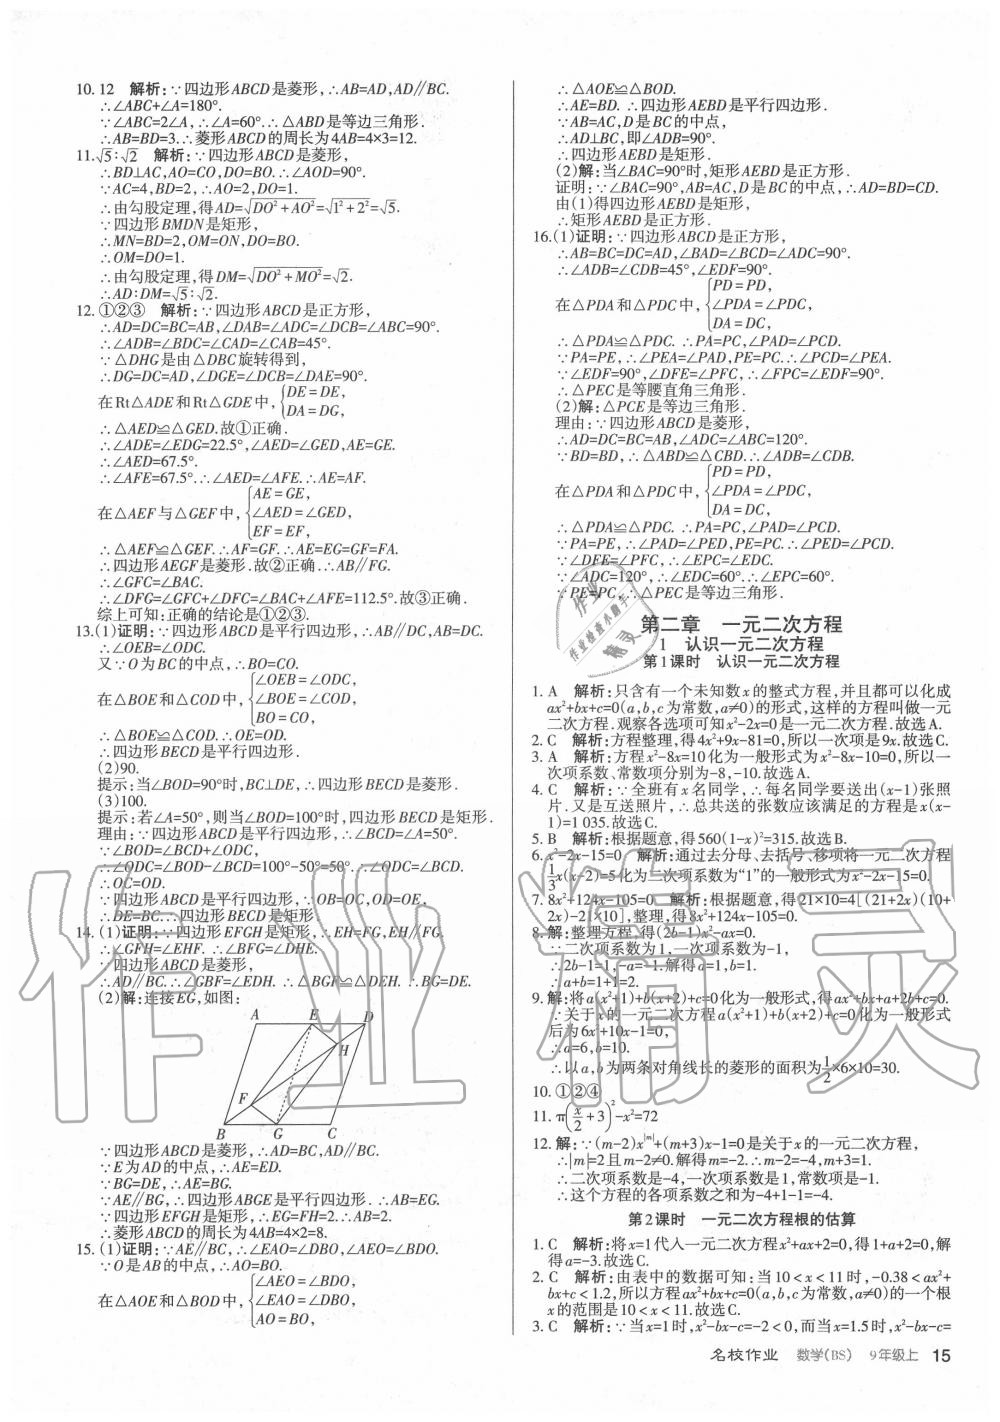 10. 12 解析:∵四边形ABCD是菱形,∴AB=AD,AD∥BC.
∴∠ABC+∠A=180°.
∵∠ABC=2∠A,∴∠A=60°.∴△ABD是等边三角形.
∴AB=BD=3.∴菱形ABCD的周长为4AB=4×3=12.
11. √5:√2 解析:∵四边形ABCD是菱形,
∴BD⊥AC,AO=CO,DO=BO.∴∠AOD=90°.
∵AC=4,BD=2,∴AO=2,DO=1.
∴由勾股定理,得AD=√(DO²+AO²)=√(1²+2²)=√5.
∵四边形BMDN是矩形,
∴MN=BD=2,OM=ON,DO=BO.
∴OM=DO=1.
∴由勾股定理,得DM=√(DO²+MO²)=√2.
∴AD:DM=√5:√2.
12. ①②③ 解析:∵四边形ABCD是正方形,
∴AD=DC=BC=AB,∠DAB=∠ADC=∠DCB=∠ABC=90°.
∴∠ADB=∠BDC=∠CAD=∠CAB=45°.
∵△DHG是由△DBC旋转得到,
∴DG=DC=AD,∠DGE=∠DCB=∠DAE=90°.
在Rt△ADE和Rt△GDE中,{DE=DE,
DA=DG,
∴△AED≌△GED.故①正确.
∴∠ADE=∠EDG=22.5°,∠AED=∠GED,AE=GE.
∴∠AED=67.5°.
∴∠AFE=67.5°.∴∠AED=∠AFE.∴AE=AF.
在△AEF与△GEF中,{AE=GE,
∠AED=∠GED,
EF=EF,
∴△AEF≌△GEF.∴AF=GF.∴AE=EG=GF=FA.
∴四边形AEGF是菱形.故②正确.∴AB∥FG.
∴∠GFC=∠BAC.
∴∠DFG=∠GFC+∠DFC=∠BAC+∠AFE=112.5°.故③正确.
综上可知:正确的结论是①②③.
13. (1)证明:∵四边形ABCD是平行四边形,∴AB∥DC,AB=DC.
∴∠OEB=∠ODC.
又∵O为BC的中点,∴BO=CO.
在△BOE和△COD中,{∠OEB=∠ODC,
∠BOE=∠COD,
BO=CO,
∴△BOE≌△COD.∴OE=OD.
∴四边形BECD是平行四边形.
(2)90.
提示:当∠BOD=90°时,BC⊥DE,∴四边形BECD是菱形.
(3)100.
提示:若∠A=50°,则当∠BOD=100°时,四边形BECD是矩形.
理由:∵四边形ABCD是平行四边形,∴∠BCD=∠A=50°.
∵∠BOD=∠BCD+∠ODC,
∴∠ODC=∠BOD-∠BCD=100°-50°=50°.∴∠ODC=∠BCD.
∴OC=OD.
∵四边形BECD是平行四边形,∴OB=OC,OD=OE,
∴DE=BC.∴四边形BECD是矩形.
14. (1)证明:∵四边形EFGH是矩形,∴EH=FG,EH∥FG.
∴∠GFH=∠EHF.∴∠BFG=∠DHE.
∵四边形ABCD是菱形,
∴AD∥BC.∴∠GBF=∠EDH.∴△BGF≌△DEH.∴BG=DE.
(2)解:连接EG,如图:
A E D
H
F
B G C
∵四边形ABCD是菱形,∴AD=BC,AD∥BC.
∵E为AD的中点,∴AE=ED.
∵BG=DE,∴AE=BG.
∵AE∥BG,∴四边形ABGE是平行四边形.∴AB=EG.
∵四边形EFGH是矩形,∴EG=FH=2.∴AB=2.
∴菱形ABCD的周长为4AB=4×2=8.
15. (1)证明:∵AE∥BC,∴∠EAO=∠DBO,∠AEO=∠BDO.
∵O是AB的中点,∴AO=BO.
在△AOE和△BOD中,{∠AEO=∠BDO,
∠EAO=∠DBO,
AO=BO,
∴△AOE≌△BOD.
∴AE=BD.∴四边形AEBD是平行四边形.
∵AB=AC,D是BC的中点,
∴AD⊥BC,即∠ADB=90°.
∴四边形AEBD是矩形.
(2)解:当∠BAC=90°时,矩形AEBD是正方形.
证明:∵∠BAC=90°,AB=AC,D是BC的中点,∴AD=BD=CD.
由(1)得四边形AEBD是矩形,
∴矩形AEBD是正方形.
16. (1)证明:∵四边形ABCD是正方形,
∴AB=BC=DC=AD,∠BAD=∠BCD=∠ADC=90°.
∴∠ADB=∠CDB=45°,∠EDF=90°.
在△PDA和△PDC中,{PD=PD,
∠PDA=∠PDC,
DA=DC,
∴△PDA≌△PDC.∴PA=PC,∠PAD=∠PCD.
∵PA=PE,∴∠PEA=∠PAD,PE=PC.∴∠PCD=∠PEA.
∵∠EDF=90°,∠DFE=∠PFC,∴∠FPC=∠EDF=90°.
∴△PEC是等腰直角三角形.
(2)解:△PCE是等边三角形.
理由:∵四边形ABCD是菱形,
∴AD=DC=BC=AB,∠ADC=∠ABC=120°.
∵BD=BD,∴△ABD≌△CBD.∴∠ADB=∠CDB.
在△PDA和△PDC中,{PD=PD,
∠PDA=∠PDC,
DA=DC,
∴△PDA≌△PDC.∴PA=PC,∠PAD=∠PCD.
∵PA=PE,∴∠PAD=∠PED,PE=PC.∴∠PED=∠PCD.
∵∠DFE=∠PFC,∴∠EPC=∠EDC.
∵∠ADC=120°,∴∠EDC=60°.∴∠EPC=60°.
∵PE=PC,∴△PEC是等边三角形.
第二章 一元二次方程
1 认识一元二次方程
第1课时 认识一元二次方程
1. A 解析:只含有一个未知数x的整式方程,并且都可以化成
ax²+bx+c=0(a,b,c为常数,a≠0)的形式,这样的方程叫做一元
二次方程.观察各选项可知x²-2x=0是一元二次方程.故选A.
2. C 解析:方程整理,得4x²+9x-81=0,所以一次项是9x.故选C.
3. A 解析:方程x²-8x=10化为一般形式为x²-8x-10=0,所以一
次项系数、常数项分别为-8,-10.故选A.
4. C 解析:∵全班有x名同学,∴每名同学要送出(x-1)张照
片.又是互送照片,∴总共送的张数应该满足的方程是x(x-
1)=1 035.故选C.
5. B 解析:根据题意,得560(1-x)²=315.故选B.
6. x²-2x-15=0 解析:通过去分母、去括号、移项将一元二次方程
1/3x(x-2)=5化为二次项系数为“1”的一般形式为x²-2x-15=0.
7. 8x²+124x-105=0 解析:根据题意,得21×10=4[(21+2x)(10+
2x)-21×10],整理,得8x²+124x-105=0.
8. 解:整理方程,得(2b-1)x²-ax=0.
∵二次项系数为1,一次项系数为-1,
∴2b-1=1,-a=-1.解得a=1,b=1.
∴a+b=1+1=2.
9. 解:将a(x²+1)+b(x+2)+c=0化为一般形式,得ax²+bx+a+2b+c=0.
∵关于x的一元二次方程a(x²+1)+b(x+2)+c=0化为一般形式
后为6x²+10x-1=0,
∴a=6,b=10.
∴以a,b为两条对角线长的菱形的面积为1/2×6×10=30.
10. ①②④
11. π(x/2+3)²-x²=72
12. 解:∵(m-2)x^|m|+(m+3)x-1=0是关于x的一元二次方程,
∴|m|=2且m-2≠0.解得m=-2.∴m-2=-4,m+3=1.
∴二次项系数是-4,一次项系数是1,常数项是-1.
∴这个方程的各项系数之和为-4+1-1=-4.
第2课时 一元二次方程根的估算
1. C 解析:将x=1代入一元二次方程x²+ax+2=0,得1+a+2=0,解
得a=-3.故选C.
2. C 解析:由表中的数据可知:当10<x<11时,-0.38<ax²+
bx+c<1.2,所以方程ax²+bx+c=0(a,b,c为常数,a≠0)的一个根
x的范围是10<x<11.故选C.
3. C 解析:∵当x=1时,x²-bx-c=-2<0,而当x=1.5时,x²-bx-c=
名校作业 数学(BS) 9年级上 15
作业精灵